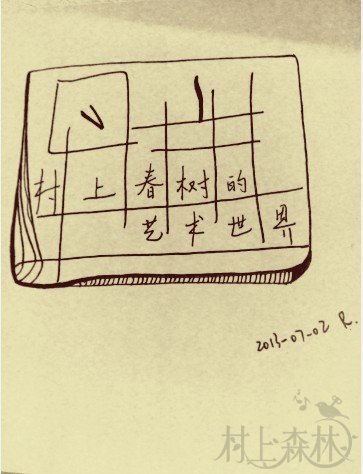 村上春树的
艺术世界
2013-07-02 R.
村上森林